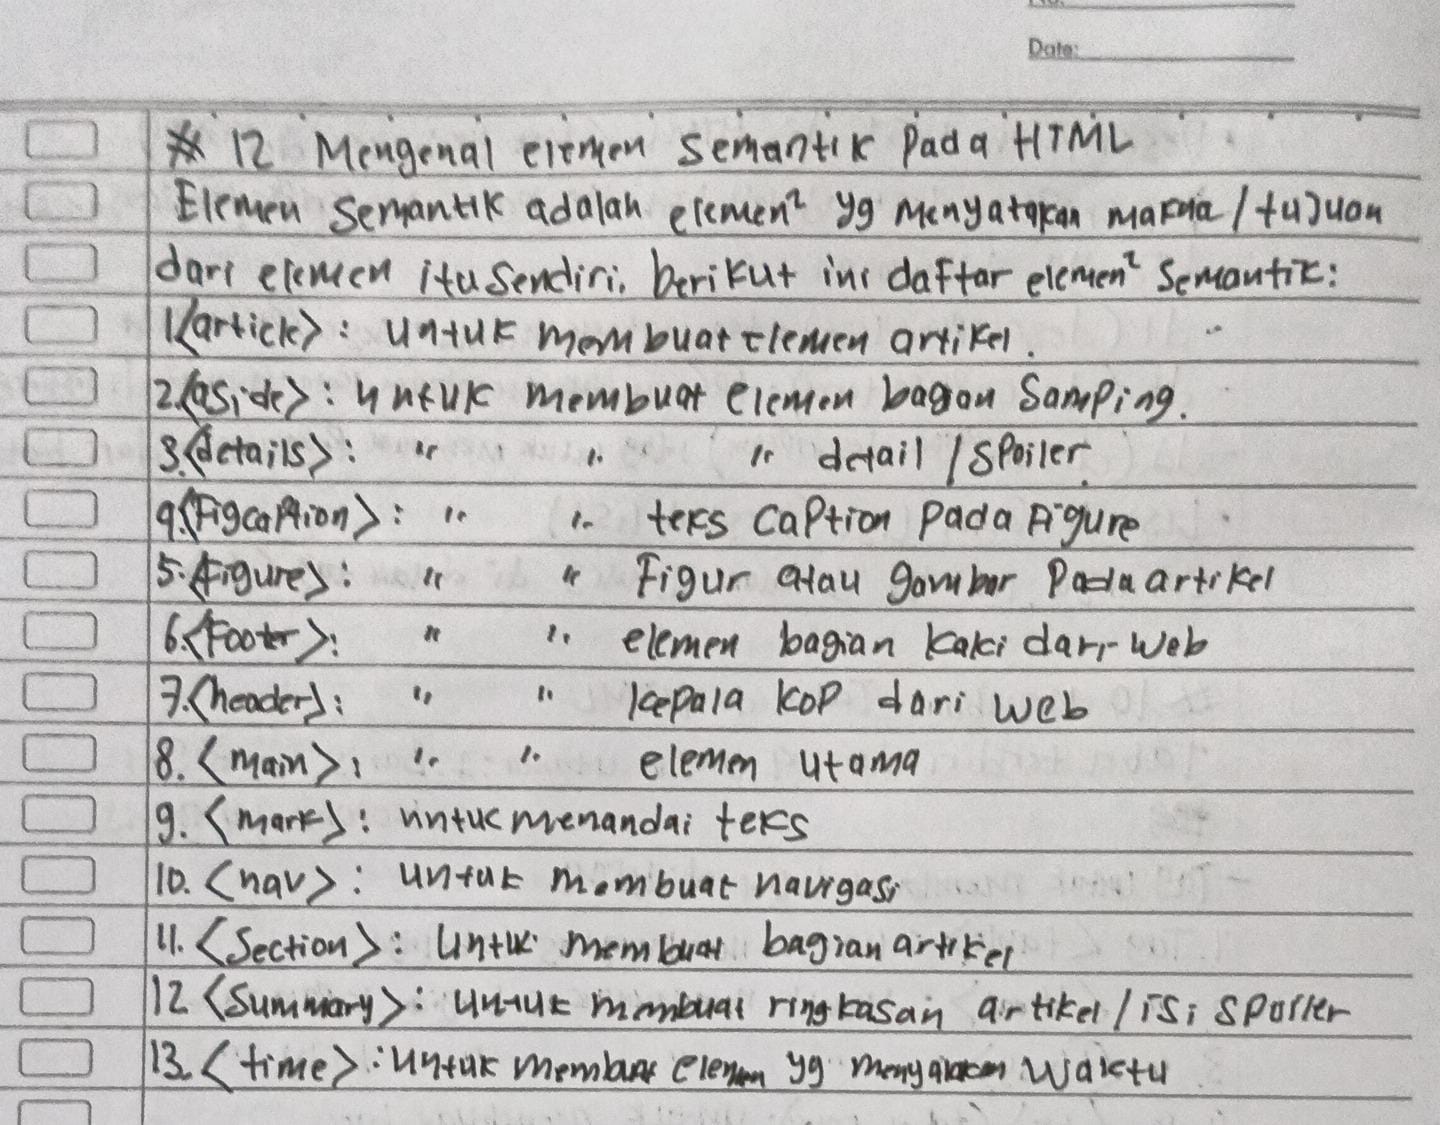 No:
Date:
# 12 Mengenal elemen semantik Pada HTML
Elemen semantik adalah elemen² yg menyatakan makna / tujuan
dari elemen itu sendiri. berikut ini daftar elemen² semantik:
1.<article>: untuk membuat elemen artikel.
2.<aside>: untuk membuat elemen bagian Samping.
3.<details>: " " " detail / SPoiler.
4.<Figcaption>: " " teks caption pada Figure
5.<figure>: " " Figur atau gambar Pada artikel
6.<Footer>: " " elemen bagian kaki dari web
7.<header>: " " kepala kop dari web
8. <main>: " " elemen utama
9. <mark>: untuk menandai teks
10. <nav>: untuk membuat navigasi
11. <Section>: Untuk membuat bagian artikel
12 <Summary>: untuk membuat ringkasan artikel / isi spoiler
13. <time>: untuk membuat elemen yg menyatakan waktu